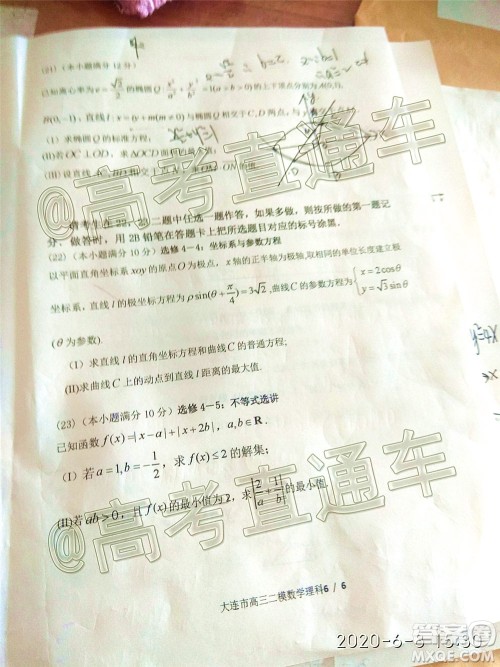 (21)(本小题满分12分)
已知离心率为e=√2/2的椭圆Q:x²/a²+y²/b²=1(a>b>0)的上下顶点分别为
(0,-1),直线l:x=ty+m(m≠0)与椭圆Q相交于C,D两点,与y
(I)求椭圆Q的标准方程;
(II)若OC⊥OD,求△OCD面积的最小值;
(III)设直线 的值.
请考生在22、23二题中任选一题作答,如果多做,则按所做的第一题记
分.做答时,用2B铅笔在答题卡上把所选题目对应的标号涂黑.
(22)(本小题满分10分)选修4-4:坐标系与参数方程
以平面直角坐标系xoy的原点O为极点,x轴的正半轴为极轴,取相同的单位长度建立极
坐标系,直线l的极坐标方程为ρsin(θ+π/4)=3√2,曲线C的参数方程为{x=2cosθ
y=√3sinθ
(θ为参数).
(I)求直线l的直角坐标方程和曲线C的普通方程;
(II)求曲线C上的动点到直线l距离的最大值.
(23)(本小题满分10分)选修4-5:不等式选讲
已知函数f(x)=|x-a|+|x+2b|,a,b∈R.
(I)若a=1,b=-1/2,求f(x)≤2的解集;
(II)若ab>0,且f(x)的最小值为2,求|2/a+1/b|的最小值.
大连市高三二模数学理科6 / 6
@高考直通车
@高考直通车
2020-6-6 15:30
MXQE.COM